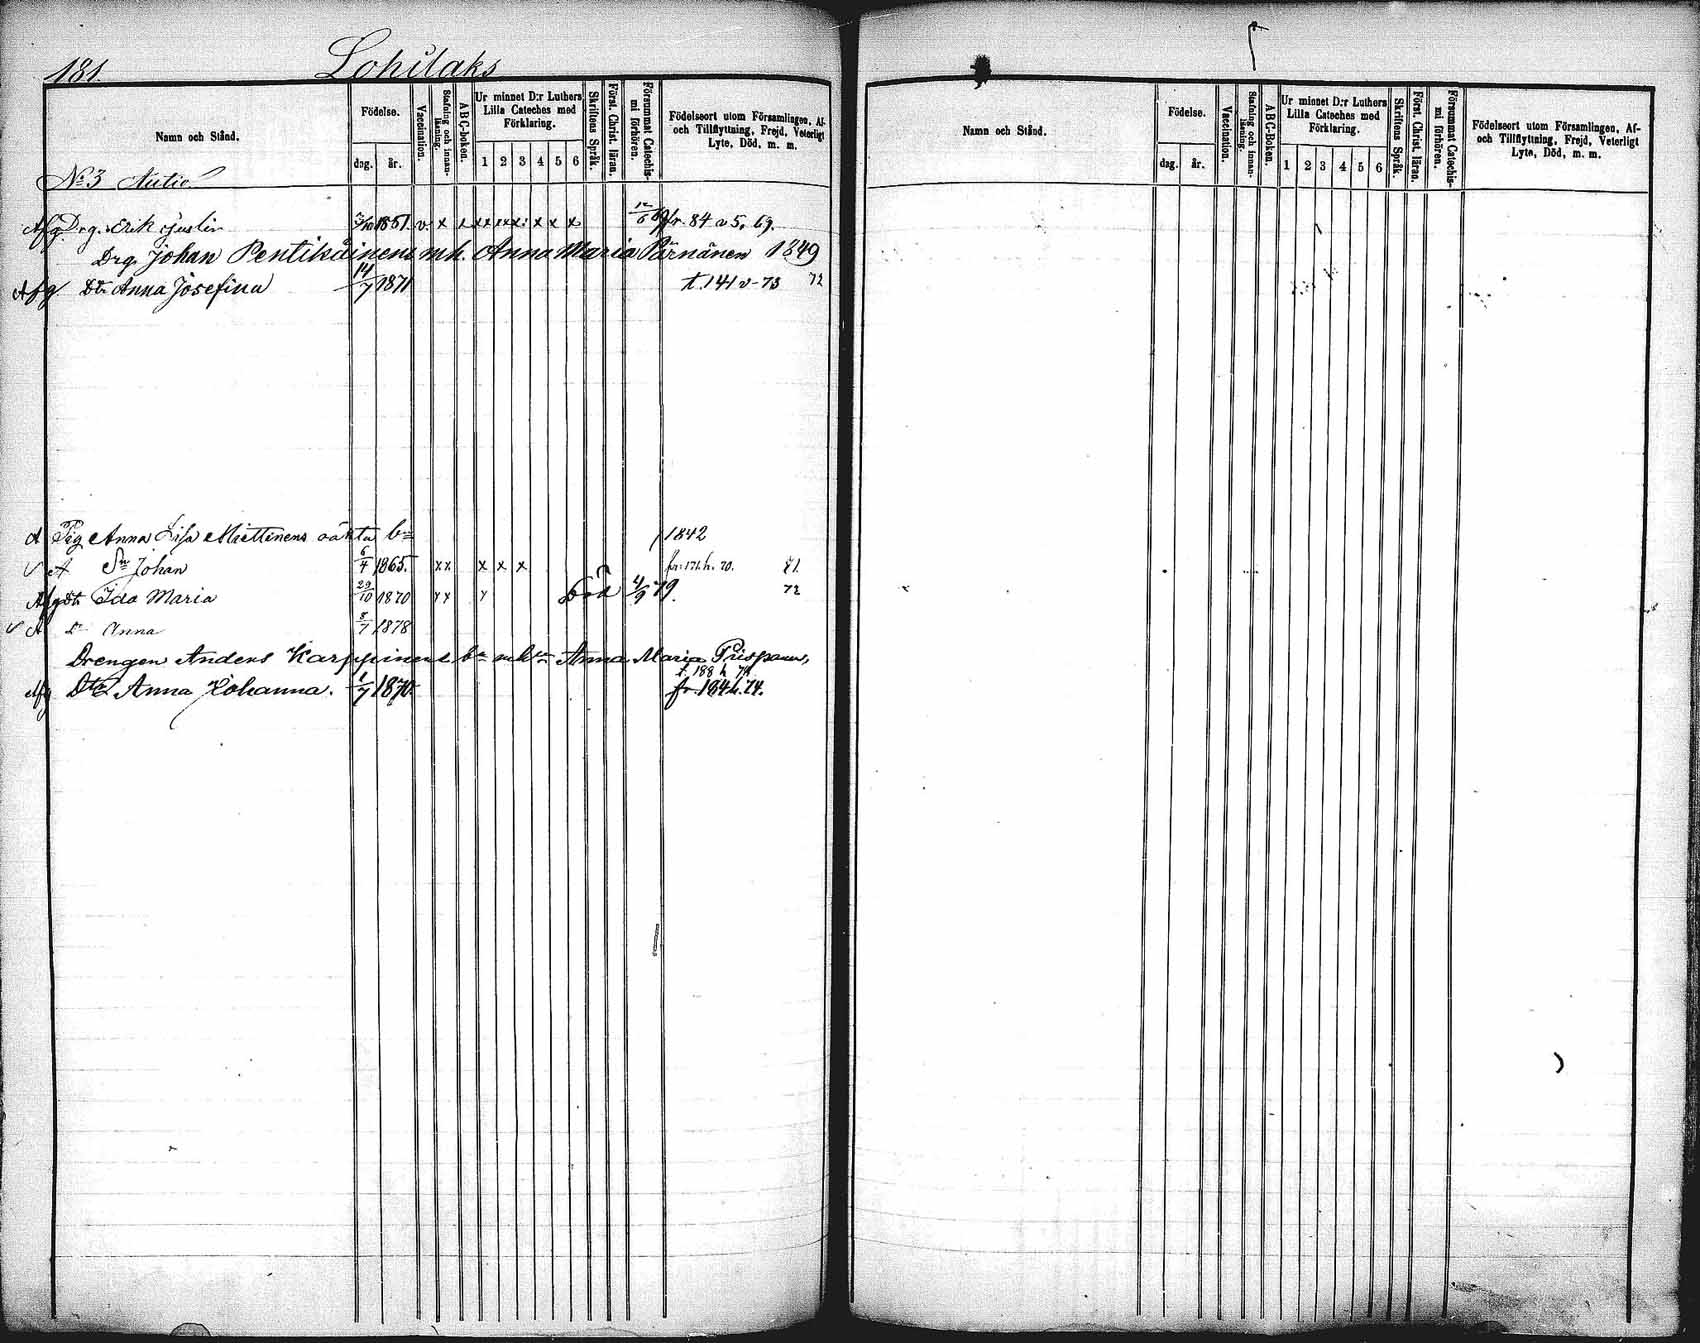 181. Lohilaks
Namn och Stånd.
Födelse.
dag. år.
Vaccination.
Stafning och innanläsning.
ABC-boken.
Ur minnet D:r Luthers Lilla Cateches med Förklaring.
1 2 3 4 5 6
Skriftens Språk.
Först. Christ. läran.
Försummat Catechismi förhören.
Födelseort utom Församlingen, Af- och Tillflyttning, Frejd, Veterligt Lyte, Död, m. m.
No 3 Autio
Afg. Drg. Erik Justin 1851. v. x x x x x x fr. 84 v 5, 69.
Drg. Johan Pentikäinens m h. Anna Maria Pärnänen 1849
Afg Dtr Anna Josefina 14/7 1871 t. 141 v - 73 72
A Pig Anna Lisa Miettinens oäkta bn 1842
A Sn Johan 6/4 1865. x x x x x fr. 171 h. 70. 71.
Afg Dtr Ida Maria 29/10 1870 x x x Död 4/9 79. 72
A Dr Anna 8/7 1878
Drengen Anders Karppinens bn m h Anna Maria
t. 188 h 74
Afg Dtr Anna Johanna. 1/7 1870. fr. 184 h. 74.
Namn och Stånd.
Födelse.
dag. år.
Vaccination.
Stafning och innanläsning.
ABC-Boken.
Ur minnet D:r Luthers Lilla Cateches med Förklaring.
1 2 3 4 5 6
Skriftens Språk.
Först. Christ. läran.
Försummat Catechismi förhören.
Födelseort utom Församlingen, Af- och Tillflyttning, Frejd, Veterligt Lyte, Död, m. m.